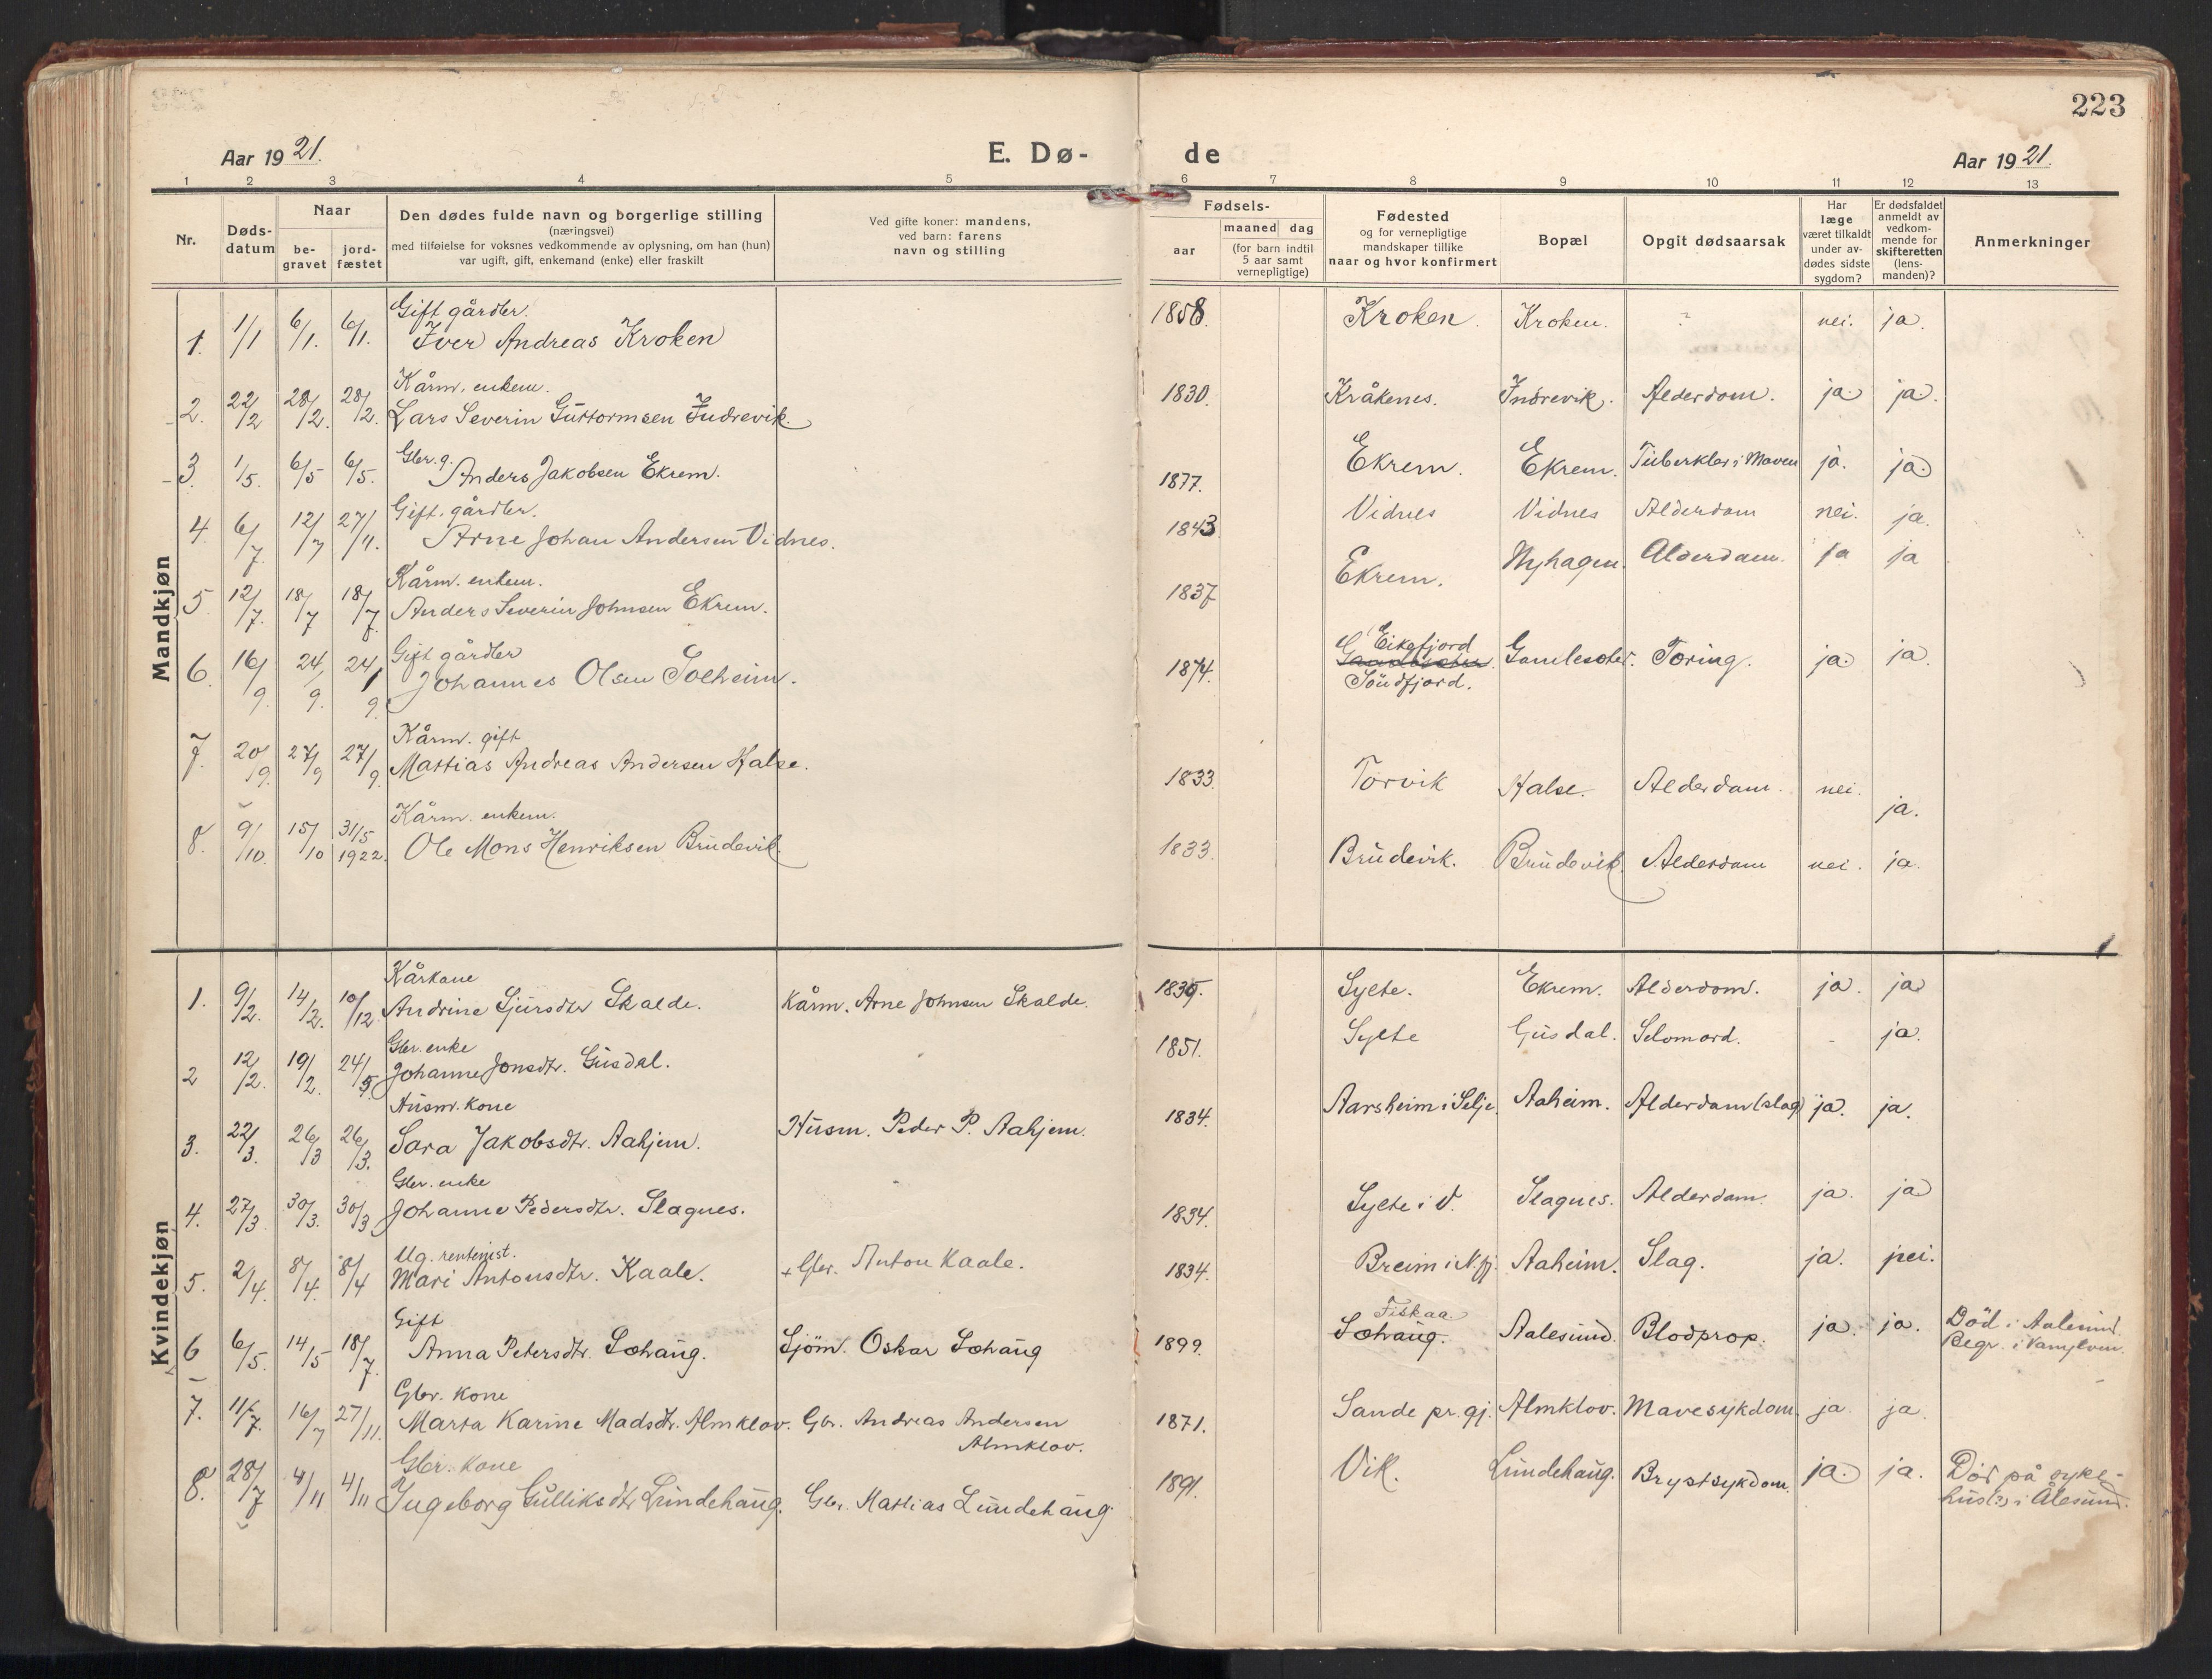 223
Aar 1921.
E. Dø-
de
Aar 1921.
1 2 3 4 5 6 7 8 9 10 11 12 13
Nr.
Døds-
datum
Naar
be-
gravet
jord-
fæstet
Den dødes fulde navn og borgerlige stilling
(næringsvei)
med tilføielse for voksnes vedkommende av oplysning, om han (hun)
var ugift, gift, enkemand (enke) eller fraskilt
Ved gifte koner: mandens,
ved barn: farens
navn og stilling
Fødsels-
aar
maaned dag
(for barn indtil
5 aar samt
vernepligtige)
Fødested
og for vernepligtige
mandskaper tillike
naar og hvor konfirmert
Bopæl
Opgit dødsaarsak
Har
læge
været tilkaldt
under av-
dødes sidste
sygdom?
Er dødsfaldet
anmeldt av
vedkom-
mende for
skifteretten
(lens-
manden)?
Anmerkninger
Mandkjøn
Gift gårdbr.
1. 1/1 6/1. 6/1. Iver Andreas Kroken 1858. Kroken. Kroken. ? nei. ja.
Kårm. enkem.
2. 22/2 28/2. 28/2. Lars Severin Guttormsen Indrevik. 1830. Kråkenes. Indrevik. Alderdom. ja. ja.
Gbr. g.
3. 1/5. 6/5 6/5. Anders Jakobsen Ekrem. 1877. Ekrem. Ekrem. Tuberkler i Maven ja. ja.
Gift. gårdbr.
4. 6/7. 12/7 27/11. Arne Johan Andersen Vidnes. 1843 Vidnes Vidnes Alderdom nei. ja.
Kårm. enkem.
5 12/7. 18/7 18/7. Anders Severin Johnsen Ekrem. 1837 Ekrem. Nyhagen. Alderdam. ja ja
Gift gårdbr
6. 16/9. 24/9. 24/9. Johannes Olsen Solheim. 1874. Eikefjord Søndfjord. Gamlesæter. Tæring. ja. ja.
Kårm. gift
7. 20/9. 27/9 27/9 Mattias Andreas Andersen Halse. 1833. Torvik Halse. Alderdam. nei. ja.
Kårm. enkem.
8. 9/10. 15/10 31/5 1922. Ole Mons Henriksen Brudevik. 1833. Brudevik. Brudevik Alderdam nei. ja.
Kvindekjøn
Kårkone
1. 9/2. 14/2. 10/12. Andrine Sjursdtr Skalde. Kårm. Arne Johnsen Skalde. 1839. Sylte. Ekrem. Alderdom. ja. ja
Gbr. enke
2 12/2. 19/2. 24/5. Johanne Jonsdtr. Gusdal. 1851. Sylte Gusdal. Selvmord. - ja.
Husm. kone
3. 22/3. 26/3 26/3. Sara Jakobsdtr. Aahjem. Husm. Peder P. Aahjem. 1834. Aarsheim i Selje. Aaheim. Alderdam (slag) ja. ja.
Gbr. enke
4. 27/3. 30/3. 30/3 Johanne Pedersdtr. Slagnes. 1834. Sylte i V. Slagnes. Alderdam. ja. ja
Ug. rentenist.
5. 2/4. 8/4. 8/4 Mari Antonsdtr. Kaale. + Gbr. Anton Kaale. 1834. Breim i N.fj. Aaheim. Slag. ja. nei.
Gift
6 6/5. 14/5 18/7. Anna Petersdtr. Lohaug. Sjöm. Oskar Lohaug 1899. Fiskaa Lohaug. Aalesund. Blodprop. ja. ja. Död i Aalesund.
Begr. i Vanylven.
Gbr. kone
7. 11/7. 16/7 27/11. Marta Karine Madsdtr. Almklov. Gbr. Andreas Andersen 1871. Sande pr.gj. Almklov. Mavesykdom. ja. ja
Almklov.
Gbr. kone
8. 28/7 4/11 4/11 Ingeborg Gulliksdtr Lundehaug. Gbr. Mattias Lundehaug 1891. Vik. Lundehaug. Brystsykdom. ja. ja. Död på syke-
hus (?) i Ålesund.